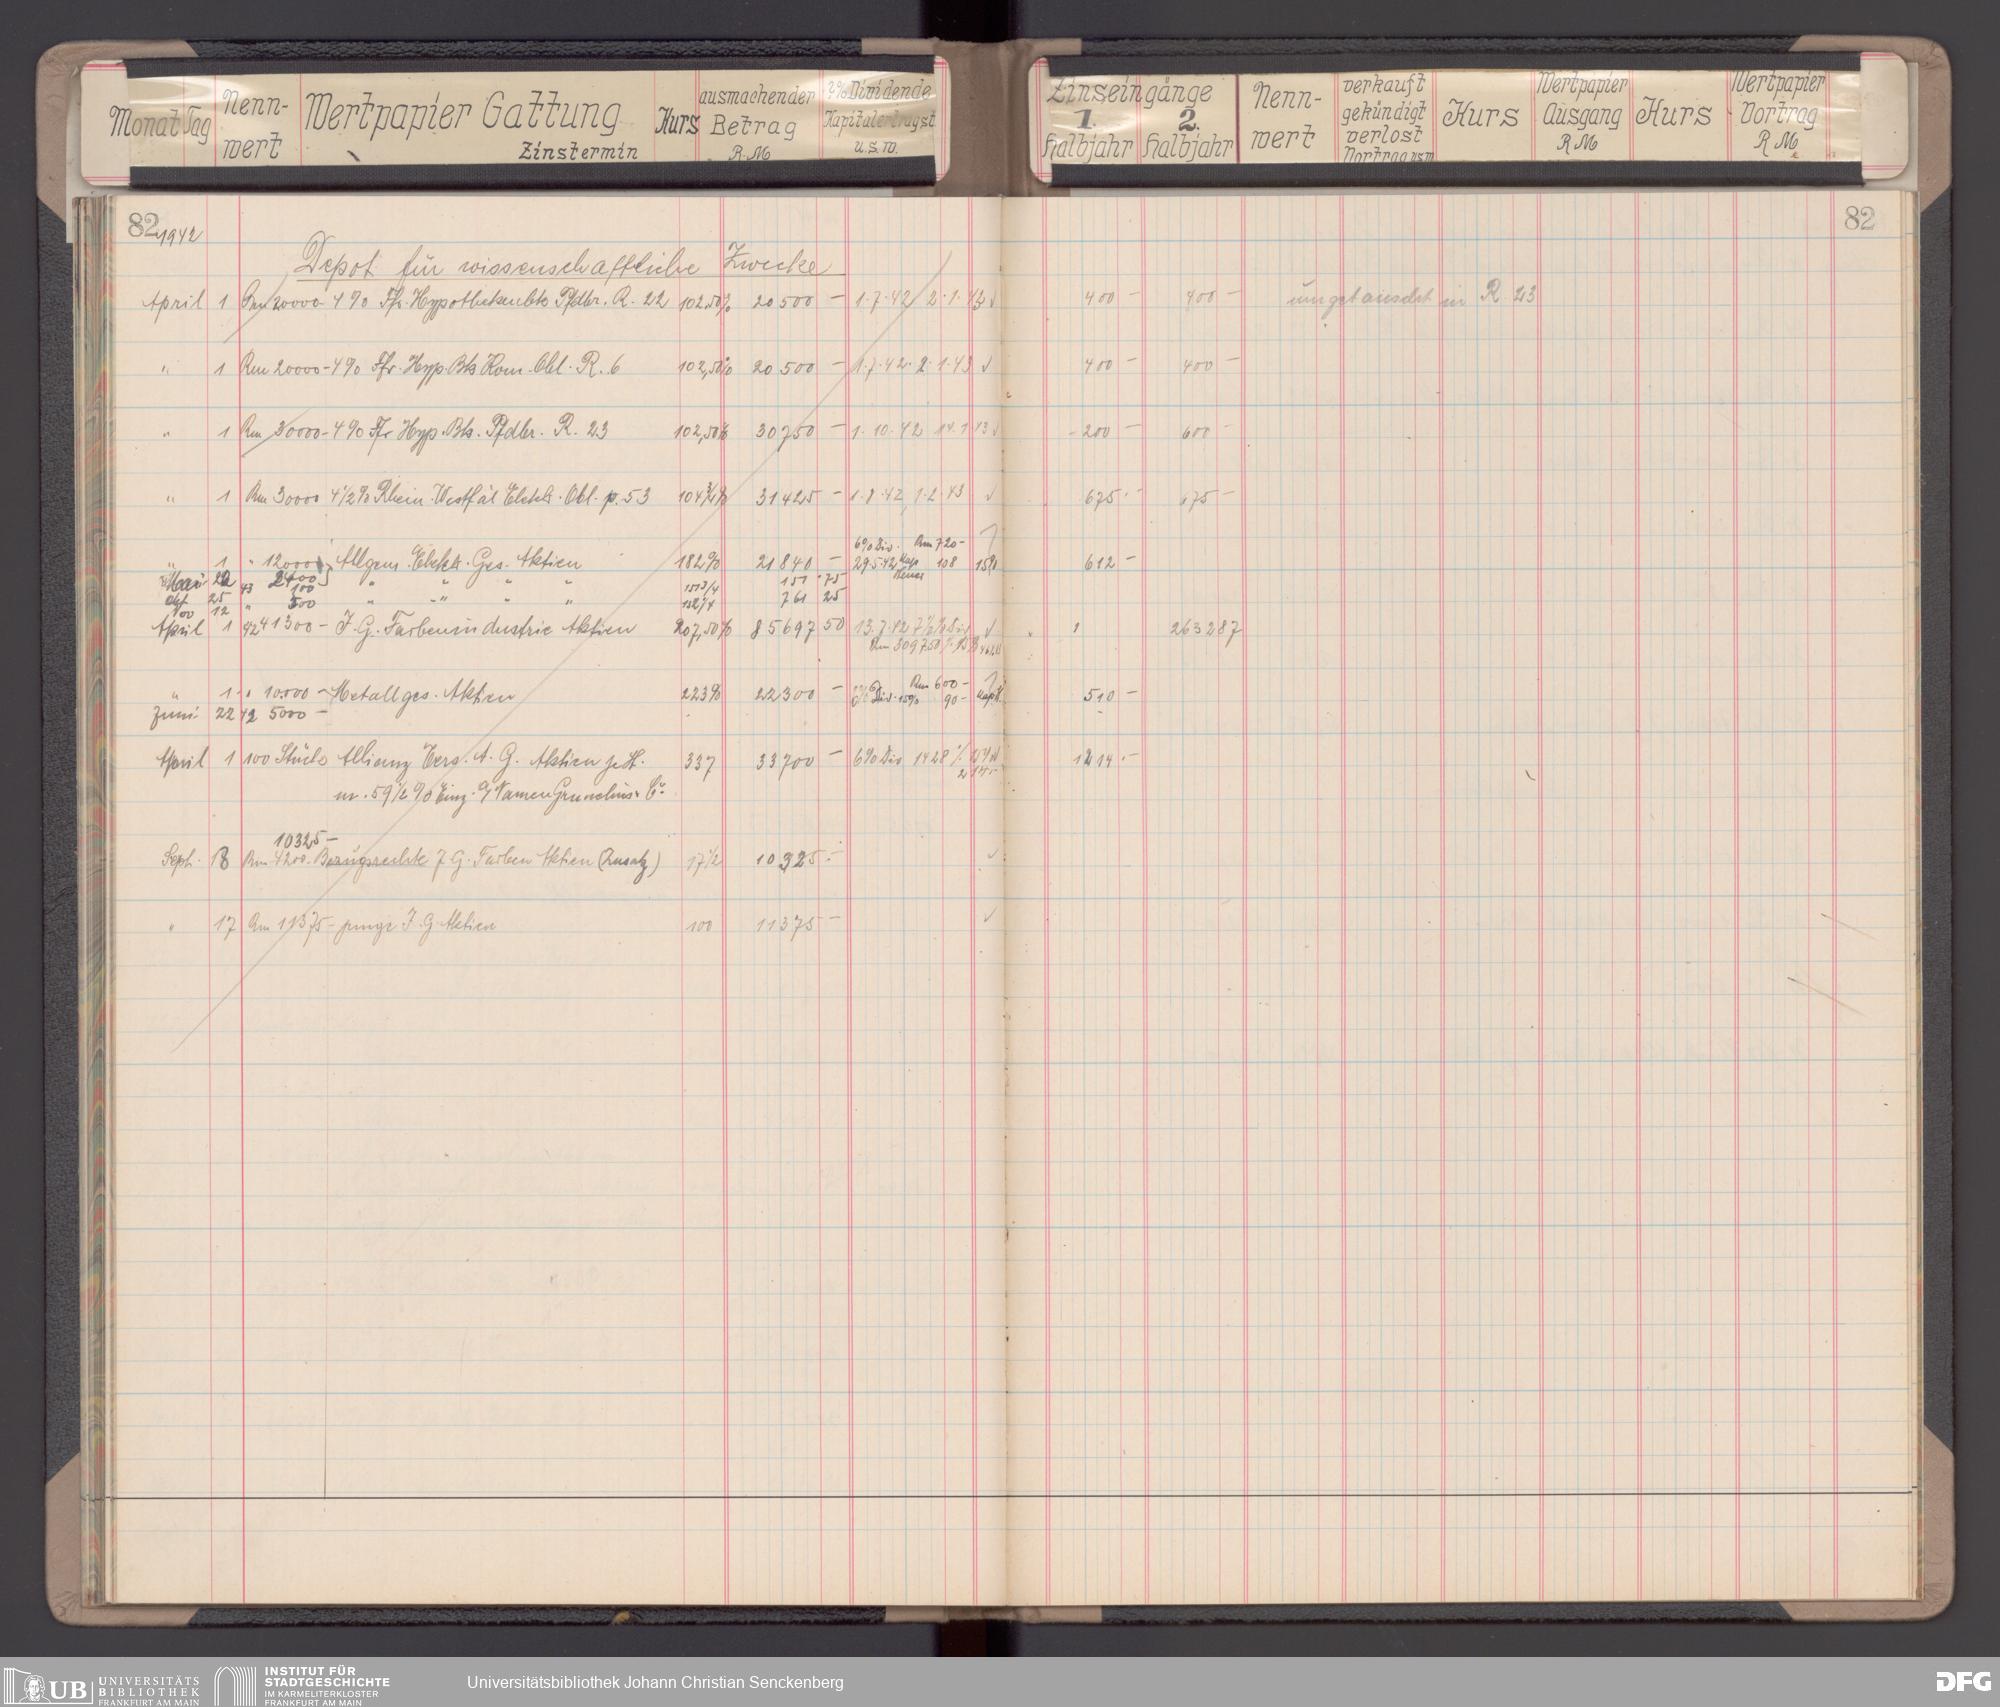 Monat Tag Nenn-wert Wertpapier Gattung Zinstermin Kurs ausmachender Betrag R.M. Dividende Kapitalertragst u.s.w.
Zinseingänge 1. Halbjahr 2. Halbjahr Nenn-wert verkauft gekündigt verlost Vortrag usw Kurs Wertpapier Ausgang R M Kurs Wertpapier Vortrag R M
82 1942 82
Depot für wissenschaftliche Zwecke
April 1 Rm 20000 - 4% Ffr. Hypothekenbk Pfdbr. R. 22 102,50% 20 500 — 1.7.42 2.1.43 400 — 400 — umgetauscht in R 23
" 1 Rm 20000 - 4% Ffr. Hyp. Bk Kom. Obl. R. 6 102,50% 20 500 — 1.7.42 2.1.43 400 — 400 —
" 1 Rm 30000 - 4% Ffr Hyp. Bk. Pfdbr. R. 23 102,50% 30750 — 1.10.42 200 — 600 —
" 1 Rm 30000 4½% Rhein. Westfäl Elektr. Obl. 53 104¾% 31425 — 1.8.42 1.2.43 675.— 675 —
" 1 " 12000 Allgem. Elektr. Ges. Aktien 182% 21840 — 6% Div. Rm 720 — 29.5.42 108 15% 612 —
Mai 22 2400
Okt 25 43 100 " " " " 151¾ 151.75
12 " 500 " " " " 152¼ 761 25
April 1 42 41300 — I. G. Farbenindustrie Aktien 207,50% 85697 50 13.7.42 7½% Div 2632 87
Rm 3097.50
" 1 " 10000 — Metallges. Aktien 223% 22300 — 6% Div. 15% Rm 600 — 90 — 510 —
Juni 22 42 5000 —
April 1 100 Stück Allianz Vers. A. G. Aktien 337 33700 — 6% Div 1428 1214.—
m. 59½% Einz. a/ Namen Grunelius & Co
10325 —
Sept. 18 Rm 4200. Bezugsrechte I G. Farben Aktien (Zusatz) 17½ 10325.—
" 17 Rm 11375 — junge I. G. Aktien 100 11375 —
UB UNIVERSITÄTS BIBLIOTHEK FRANKFURT AM MAIN
INSTITUT FÜR STADTGESCHICHTE IM KARMELITERKLOSTER FRANKFURT AM MAIN
Universitätsbibliothek Johann Christian Senckenberg
DFG